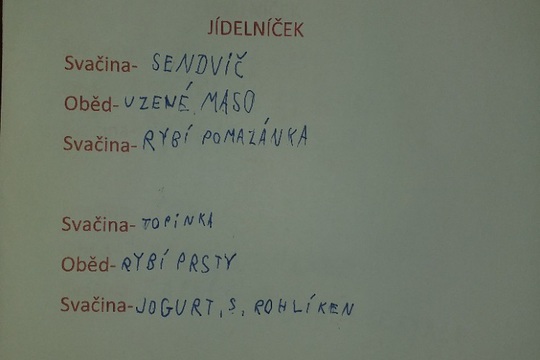 JÍDELNÍČEK
Svačina- SENDVIČ
Oběd- UZENÉ MASO
Svačina- RYBÍ POMAZÁNKA
Svačina- TOPINKA
Oběd- RYBÍ PRSTY
Svačina- JOGURT, S, ROHLÍKEN